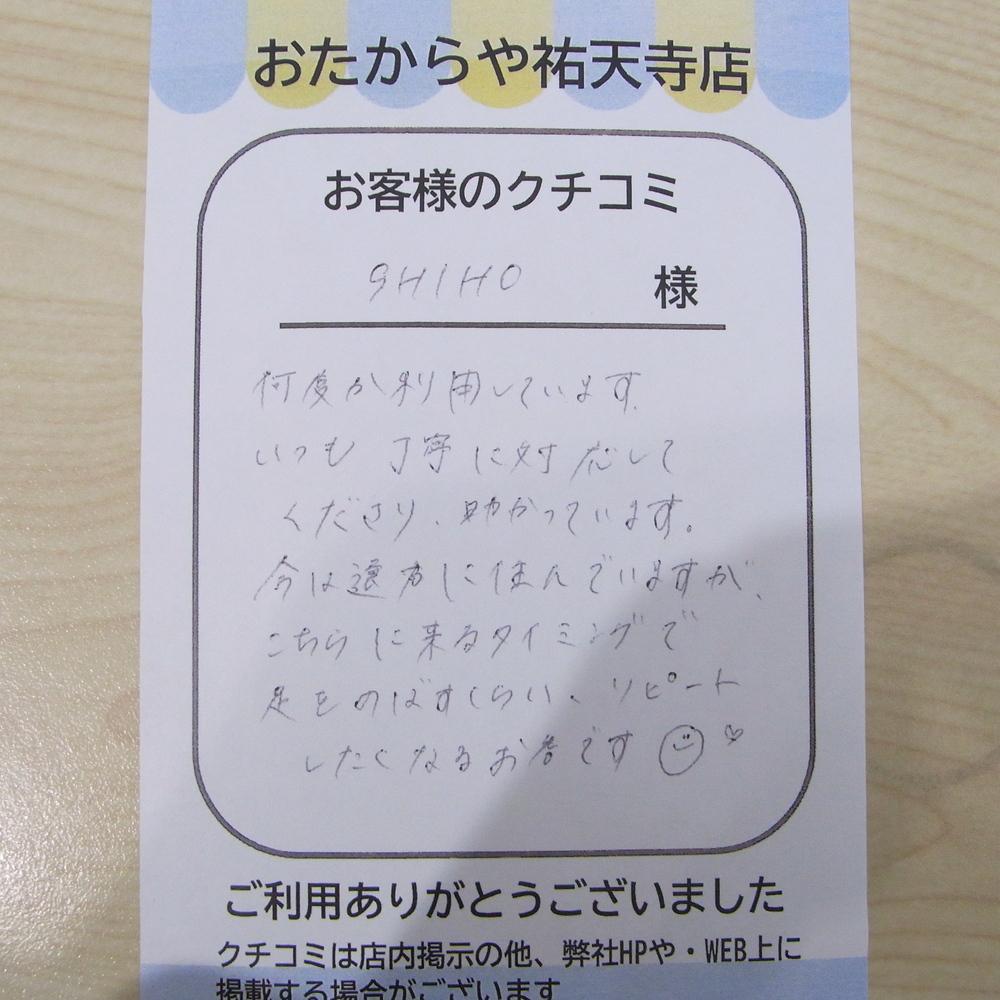 おたからや祐天寺店
お客様のクチコミ
SHIHO 様
何度か利用しています。
いつも 丁寧に対応して
くださり、助かっています。
今は遠方に住んでいますが、
こちらに来るタイミングで
足をのばすくらい、リピート
したくなるお店です
ご利用ありがとうございました
クチコミは店内掲示の他、弊社HPや・WEB上に
掲載する場合がございます